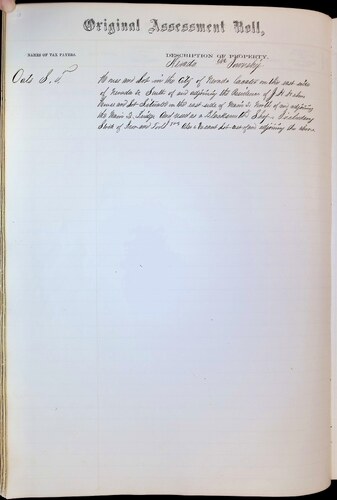 Original Assessment Roll,
NAMES OF TAX PAYERS.
DESCRIPTION OF PROPERTY.
Nevada Township
House and Lot in the City of Nevada located on the east side
of Nevada St South of and adjoining the Residence of J. H. Helm
House and Lot Situated on the east side of Main St North of and adjoining
the Main St Bridge and used as a Blacksmith Shop Including
Stock of Iron and Tools Also House and Lot and adjoining the above